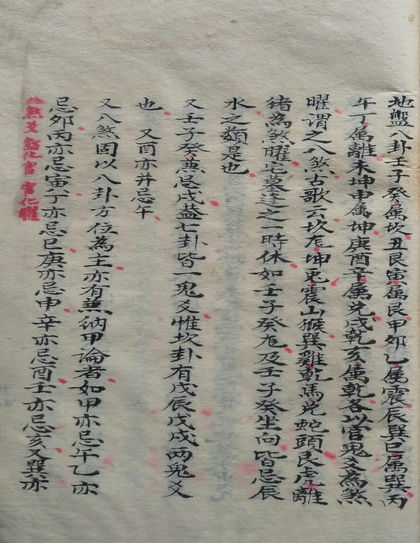 地盤八卦壬子癸屬坎丑艮寅屬艮甲卯乙屬震辰巽巳屬巽丙
午丁屬離未坤申屬坤庚酉辛屬兌戌乾亥屬乾各以官鬼爻為煞
曜謂之八煞古歌云坎龍坤兎震山猴巽雞乾馬兌蛇頭艮虎離
猪為煞曜宅墓逢之一時休如壬子癸龍及壬子癸坐向皆忌辰
水之類是也
又壬子癸兼忌戌蓋七卦皆一鬼爻惟坎卦有戊辰戊戌兩鬼爻
也 又酉亦并忌午
又八煞固以八卦方位為主亦有兼納甲論者如甲亦忌午乙亦
忌卯丙亦忌寅丁亦忌巳庚亦忌申辛亦忌酉壬亦忌亥又巽亦
煞爻 化官 官化